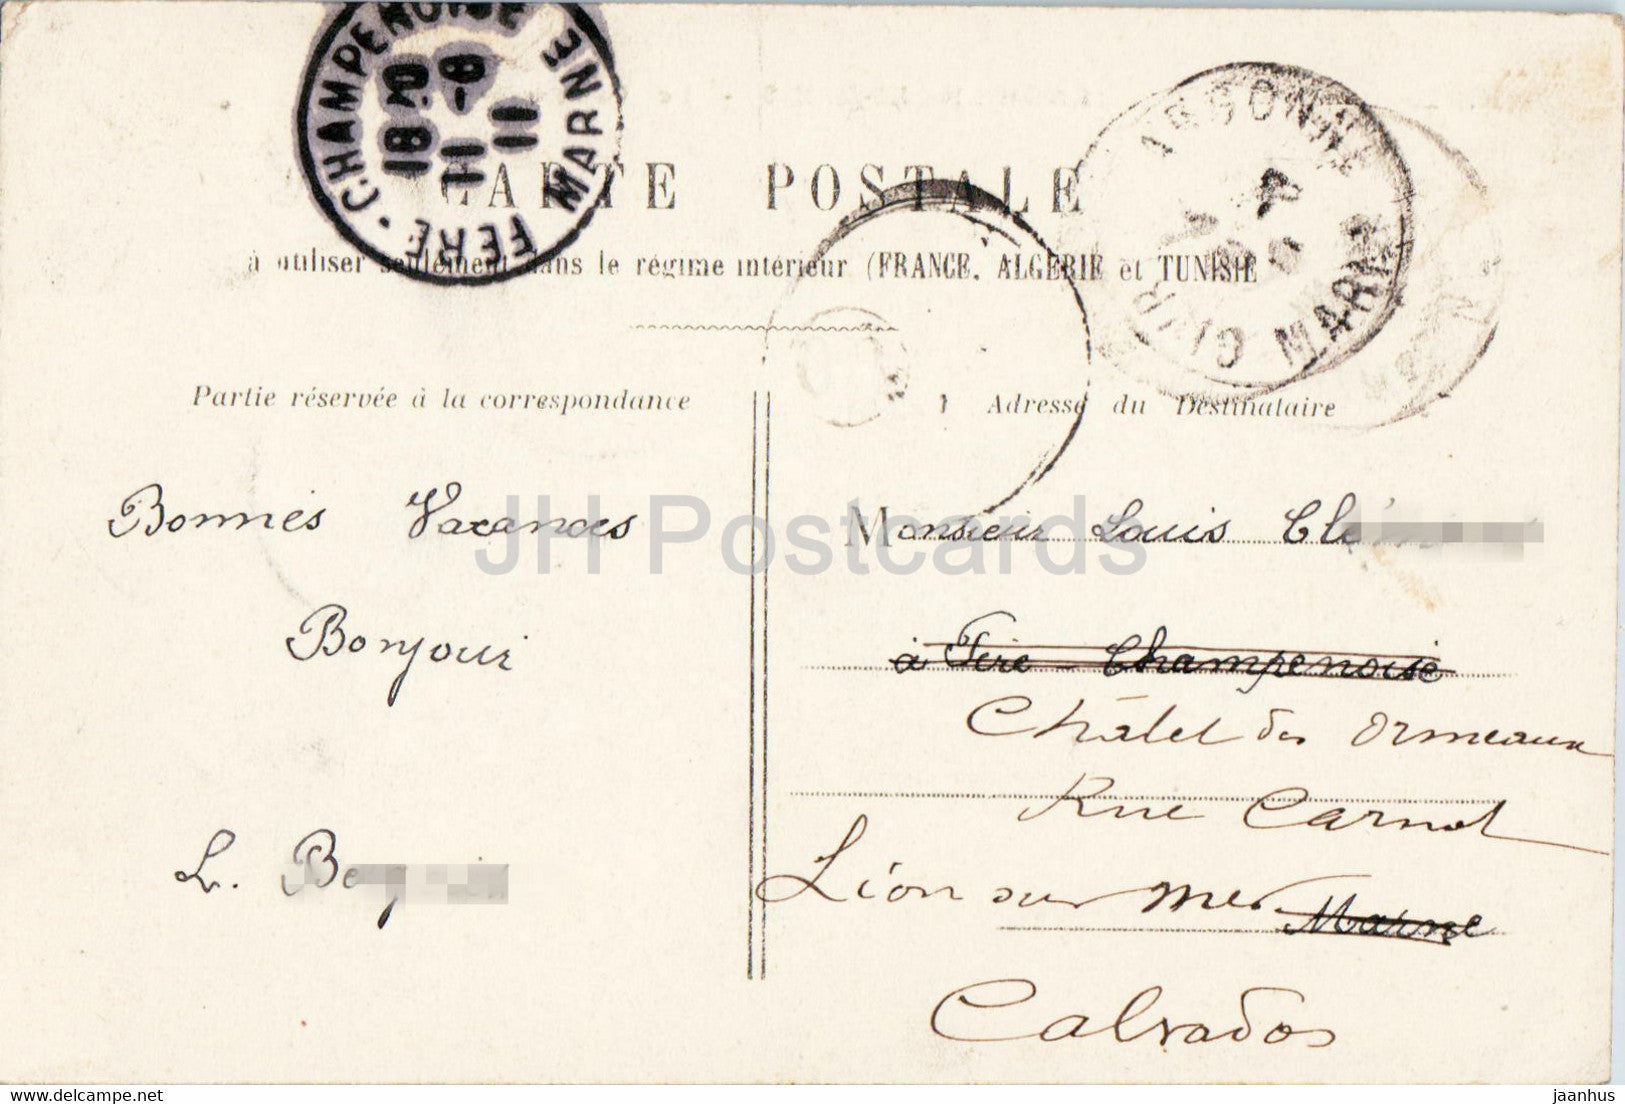 CHAMPENOISE
FERE MARNE
18 30
11 -8
11
ARGONNE
MARNE
CARTE POSTALE
à utiliser seulement dans le régime intérieur (FRANCE, ALGÉRIE et TUNISIE
Partie réservée à la correspondance
Adresse du Destinataire
Bonnes Vacances
Bonjour
L. Be
Monsieur Louis Clé
à Fère-Champenoise
Châlet des Ormeaux
Rue Carnot
Lion sur mer Marne
Calvados
JH Postcards
jaanhus